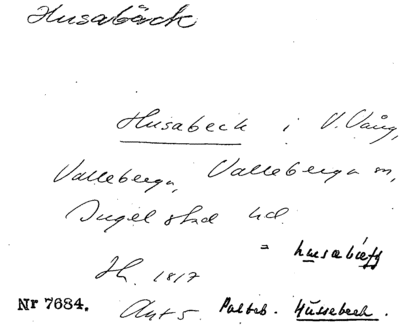 Husabäck
Husabeck i V. Vång,
Valleberga, Valleberga sn,
Ingelstad hd.
=
Jh. 1817
Nr 7684. Akt 5. Palteb. Hüssebeck.